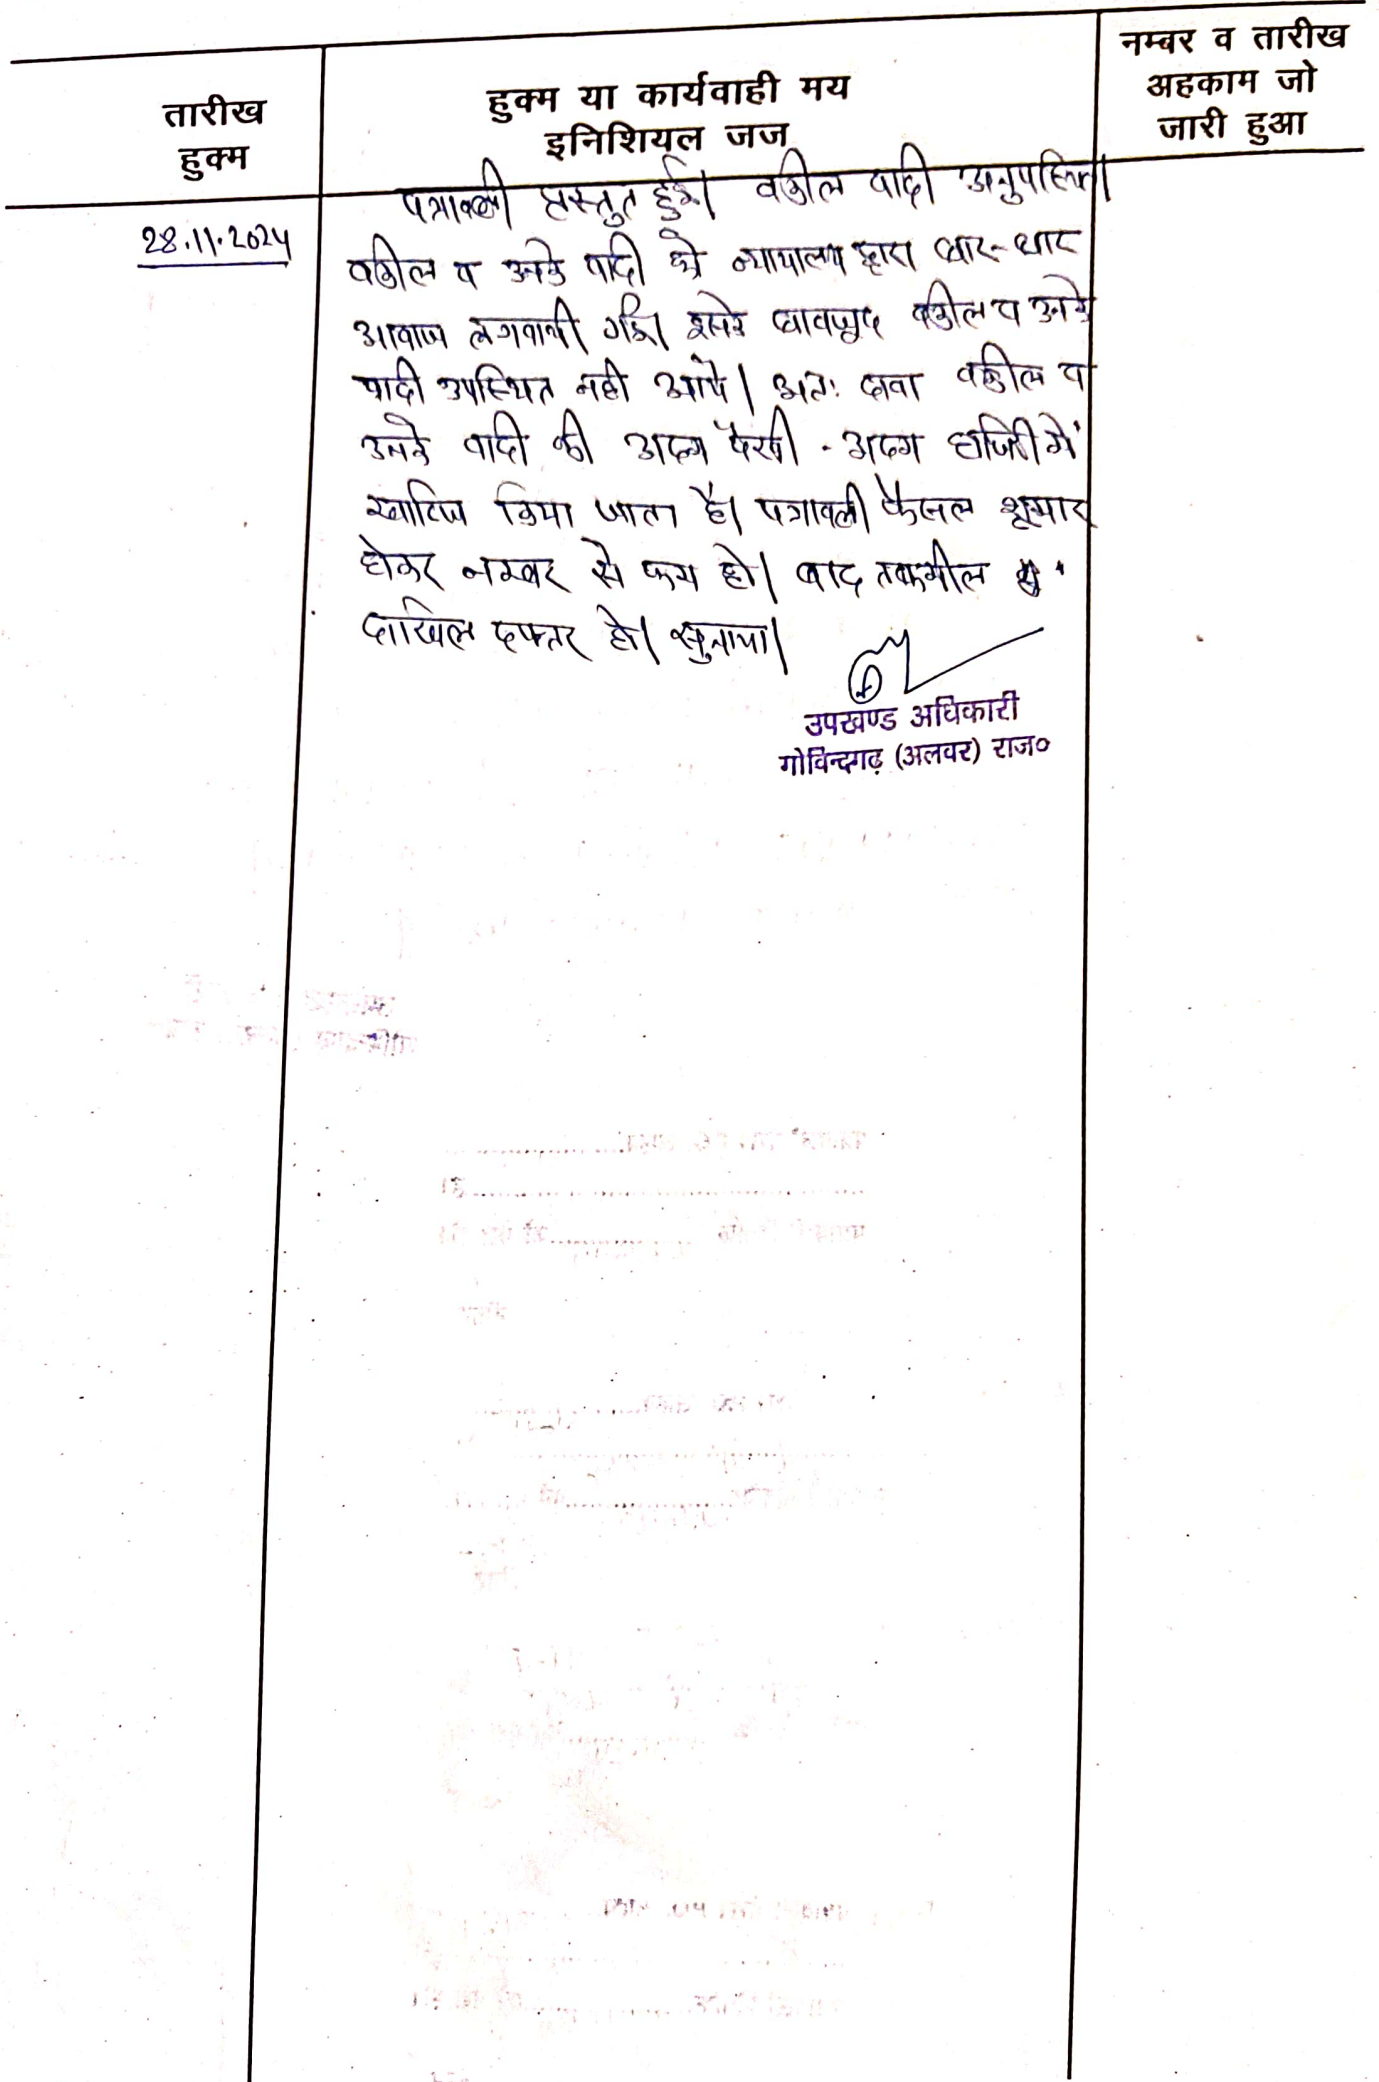 तारीख
हुक्म
हुक्म या कार्यवाही मय
इनिशियल जज
नम्बर व तारीख
अहकाम जो
जारी हुआ
28.11.2024
पत्रावली प्रस्तुत हुई। वकील वादी अनुपस्थित।
वकील व उनके वादी को न्यायालय द्वारा बार-बार
आवाज लगवायी गई। इसके बावजूद वकील व उनके
वादी उपस्थित नही आये। अतः दावा वकील व
उनके वादी की अदम पैरवी - अदम हाजिरी में
खारिज किया जाता है। पत्रावली फैसल शुमार
होकर नम्बर से कम हो। बाद तकमील
दाखिल दफ्तर हो। सुनाया।
उपखण्ड अधिकारी
गोविन्दगढ़ (अलवर) राज०